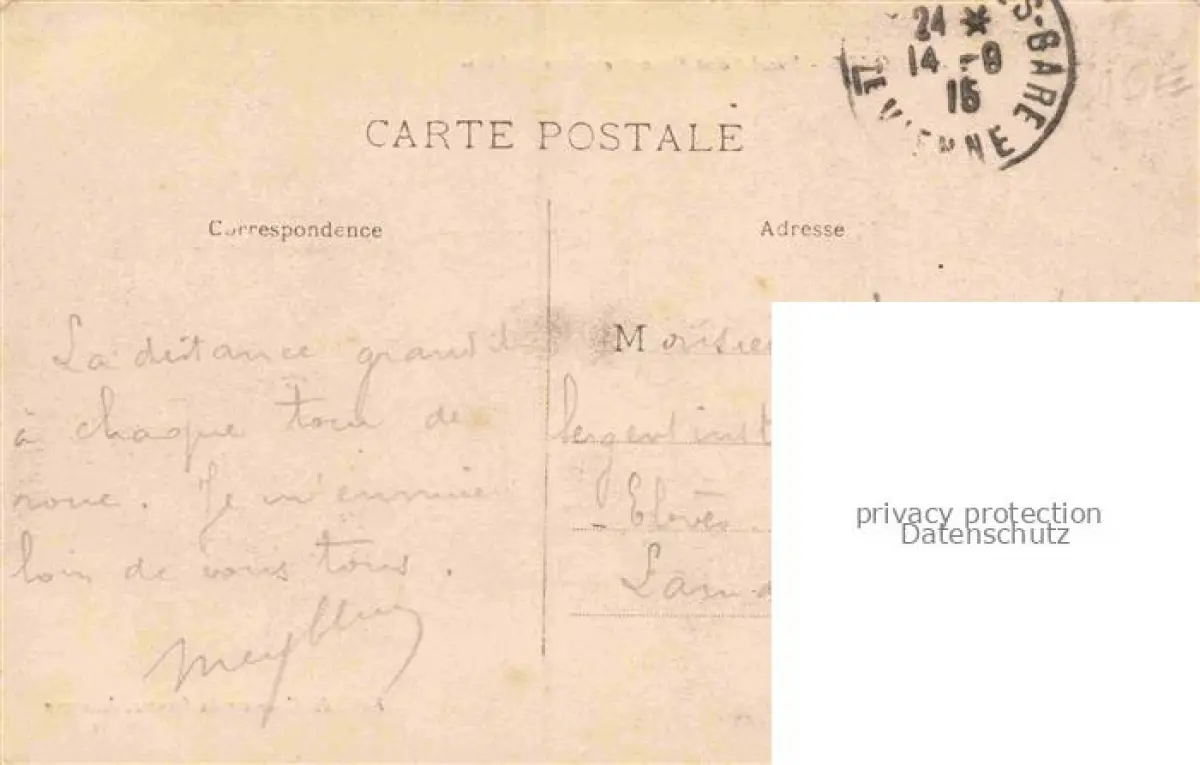 24 *
14 - 8
15
S-GARE
VIENNE
CARTE POSTALE
Correspondence
Adresse
La distance grandit
à chaque tour de
roue. Je m'ennuie
loin de vous tous.
Monsieu
Sergent inst
Elèves
privacy protection
Datenschutz